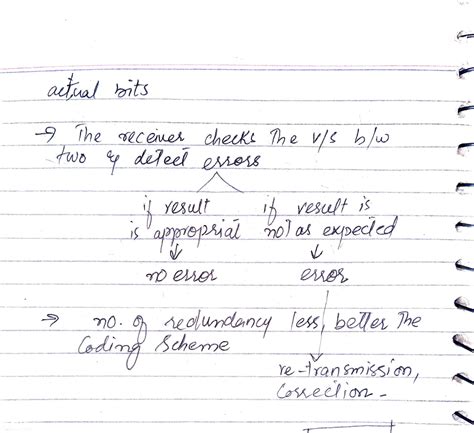 actual bits
→ The receiver checks the v/s b/w
two & detect errors
if result if result is
is appropriat not as expected
no error error
→ no. of redundancy less, better the
Coding Scheme
re-transmission,
Correction -